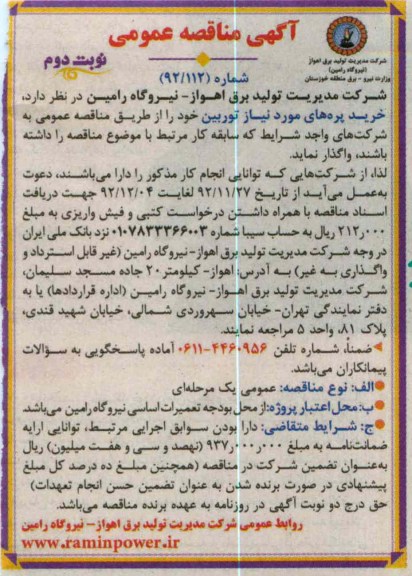 آگهی مناقصه عمومی
شرکت مدیریت تولید برق اهواز
(نیروگاه رامین)
وزارت نیرو - برق منطقه خوزستان
نوبت دوم
شماره (۹۲/۱۱۲)
شرکت مدیریت تولید برق اهواز- نیروگاه رامین در نظر دارد،
خرید پره‌های مورد نیاز توربین خود را از طریق مناقصه عمومی به
شرکت‌های واجد شرایط که سابقه کار مرتبط با موضوع مناقصه را داشته
باشند، واگذار نماید.
لذا، از شرکت‌هایی که توانایی انجام کار مذکور را دارا می‌باشند، دعوت
به‌عمل می‌آید از تاریخ ۹۲/۱۱/۲۷ لغایت ۹۲/۱۲/۰۴ جهت دریافت
اسناد مناقصه با همراه داشتن درخواست کتبی و فیش واریزی به مبلغ
۲۱۲٫۰۰۰ ریال به حساب سیبا شماره ۰۱۰۷۸۳۳۳۶۶۰۰۳ نزد بانک ملی ایران
در وجه شرکت مدیریت تولید برق اهواز- نیروگاه رامین (غیر قابل استرداد و
واگذاری به غیر) به آدرس: اهواز- کیلومتر ۲۰ جاده مسجد سلیمان،
شرکت مدیریت تولید برق اهواز- نیروگاه رامین (اداره قراردادها) یا به
دفتر نمایندگی تهران- خیابان سهروردی شمالی، خیابان شهید قندی،
پلاک ۸۱، واحد ۵ مراجعه نمایند.
ضمناً، شماره تلفن ۴۴۶۰۹۵۶-۰۶۱۱ آماده پاسخگویی به سؤالات
پیمانکاران می‌باشد.
الف: نوع مناقصه: عمومی یک مرحله‌ای
ب: محل اعتبار پروژه: از محل بودجه تعمیرات اساسی نیروگاه رامین می‌باشد.
ج: شرایط متقاضی: دارا بودن سوابق اجرایی مرتبط، توانایی ارایه
ضمانت‌نامه به مبلغ ۹۳۷٫۰۰۰٫۰۰۰ (نهصد و سی و هفت میلیون) ریال
به‌عنوان تضمین شرکت در مناقصه (همچنین مبلغ ده درصد کل مبلغ
پیشنهادی در صورت برنده شدن به عنوان تضمین حسن انجام تعهدات)
حق درج دو نوبت آگهی در روزنامه به عهده برنده مناقصه می‌باشد.
روابط عمومی شرکت مدیریت تولید برق اهواز- نیروگاه رامین
www.raminpower.ir